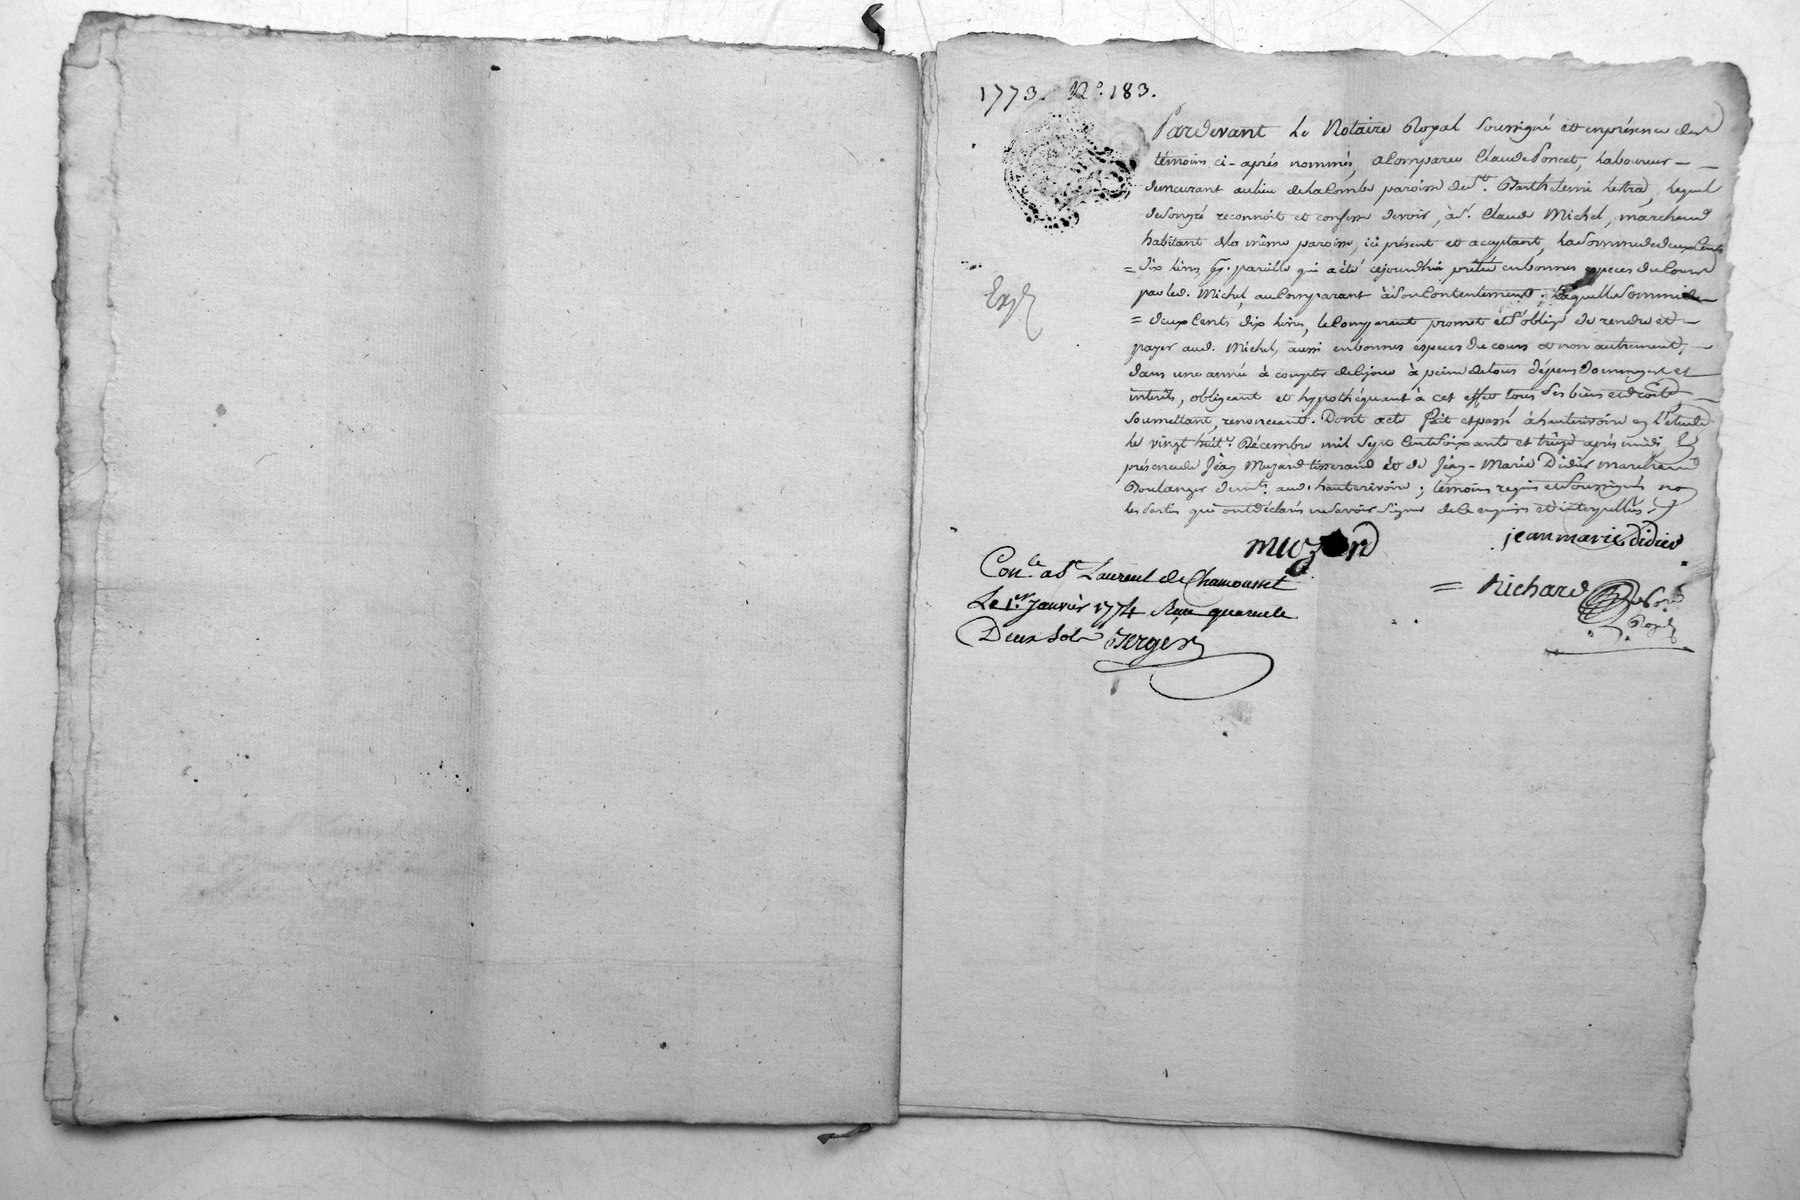 1773. N.º 183.
Pardevant le Notaire Royal soussigné et en présence des
témoins ci-après nommés, a Comparu Claude Poncet, laboureur
demeurant au lieu de la Combe paroisse de St. Barthelemi Lestra, lequel
de son gré reconnoit et confesse devoir, à Sr. Claude Michel, marchand
habitant de la même paroisse, ici présent et acceptant, la Somme de deux Cents
= dix livres, pareille qui a été cejourdhui prêtée en bonnes especes du Cours
par led. Michel, au Comparant à son Contentement ; laquelle somme de
= deux Cents dix livres, le Comparant promet et s'oblige de rendre et
payer aud. Michel, aussi en bonnes especes du cours et non autrement,
dans une année à compter de ce jour à peine de tous dépens dommages et
intérêts, obligeant et hypothéquant à cet effet tous ses biens et droits,
soumettant, renonceant. Dont acte fait et passé à hauterivoire en l'étude
le vingt huit Décembre mil sept Cent soixante et treize après midi En
présence de Jean Muzard tisserand et de Jean-Marie Didier marchand
Boulanger demts. aud. hauterivoire ; témoins requis et soussignés non
les parties qui ont déclaré ne savoir signer de ce enquis et interpellés.
muzard jean marie didier
Con.le a St Laurent de Chamousset
Le 1.er Janvier 1774 Reçu quarente
Deux sols Berger
= Richard